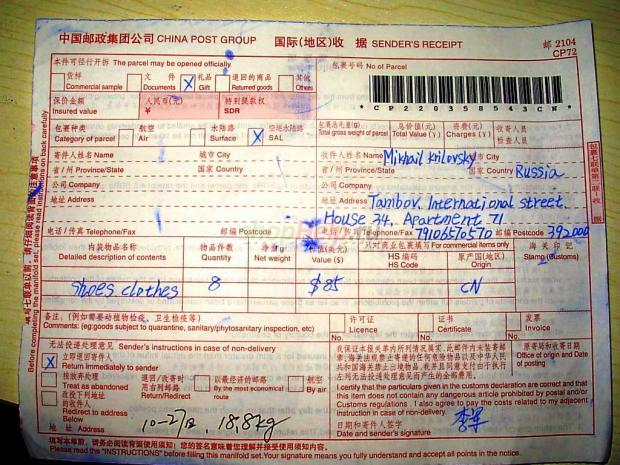 中国邮政集团公司 CHINA POST GROUP 国际(地区)收 据 SENDER'S RECEIPT 邮 2104
CP72
本件可径行开拆 The parcel may be opened officially 包裹号码 No of Parcel
货样 文件 X 礼品 退回的商品 其他
Commercial sample Documents Gift Returned goods Others
CP220358543CN
保价金额 人民币(元) 特别提款权
Insured value ¥ SDR
包裹种类 航空 水陆路 X 空运水陆路 包裹总毛重(g) 总价值(元) 资费(元) 收寄人员
Category of parcel Air Surface SAL Total gross weight of parcel Total Value(¥) Charges (¥) 检查人员
寄件人姓名 Name 城市 City 收件人姓名 Name Mikhail Krilovsky 城市 City
省/州 Province/State 国家 Country 省/州 Province/State 国家 Country Russia
公司 Company 公司 Company
地址 Address 地址 Address Tambov. International street
House 34. Apartment 71
电话/传真 Telephone/Fax 邮编 Postcode 电话/传真 Telephone/Fax 79106570570 邮编 Postcode 392000
内装物品名称 物品件数 净重 价值(美元) 只对商业包裹填写 For commercial items only 海关印记
Detailed description of contents Quantity Net weight Value ($) HS编码 原产国(地区) Stamp (Customs)
HS Code Country of Origin
Shoes clothes 8 $85 CN
备注:(例如需要动植物检疫、卫生检疫等) 许可证 证书 发票
Comments: (eg:goods subject to quarantine, sanitary/phytosanitary inspection, etc) Licence Certificate Invoice
无法投递处理意见 Sender's instructions in case of non-delivery
X 立即退回寄件人
Return immediately to sender
按放弃处理 退回/改寄时用右列邮路 以最经济的邮路 航空
Treat as abandoned Return/Redirect By the most economical route By air
改投下列地址的收件人
Redirect to addressee Below
I certify that the particulars given in the customs declaration are correct and that this item does not contain any dangerous article prohibited by postal and/or Customs regulations .I also agree to pay the costs related to my adjacent instruction in case of non-delivery.
日期和寄件人签字
Date and sender's signature
原寄局和收寄日期
Office of origin and Date of posting
18.8kg
填写本单前,请务必阅读背面使用须知!您的签名意味着您理解并接受使用须知。
Please read the "INSTRUCTIONS" before filling this manifold set.Your signature means you fully understand and accept all points in the notice.
Before completing the manifold set, please read instructions on back carefully